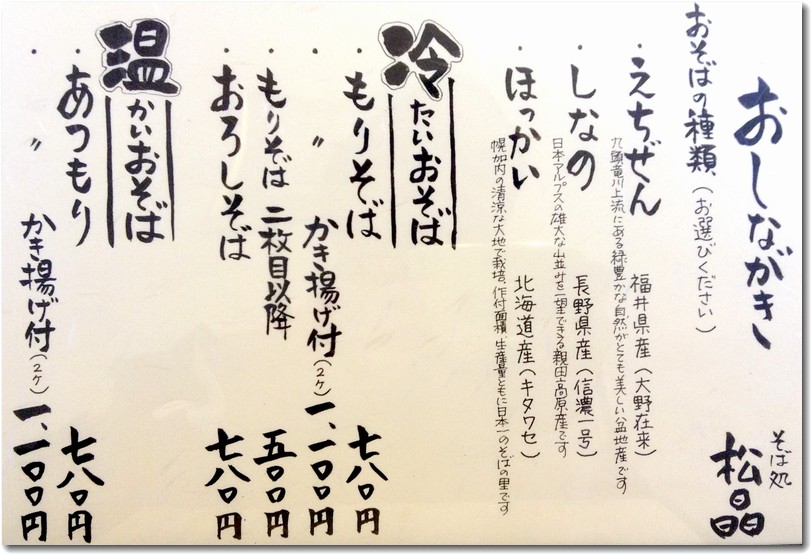 おしながき
そば処
松晶
おそばの種類、(お選びください)
・えちぜん 福井県産(大野在来)
九頭竜川上流にある緑豊かな自然がとても美しい盆地産です
・しなの 長野県産(信濃一号)
日本アルプスの雄大な山並みを一望できる親田高原産です
・ほっかい 北海道産(キタワセ)
幌加内の清涼な大地で栽培、作付面積、生産量ともに日本一のそばの里です
冷たいおそば
・もりそば 七八〇円
・〃 かき揚げ付(2ヶ) 一、一〇〇円
・もりそば 二枚目以降 五〇〇円
・おろしそば 七八〇円
温かいおそば
・あつもり 七八〇円
・〃 かき揚げ付(2ヶ) 一、一〇〇円